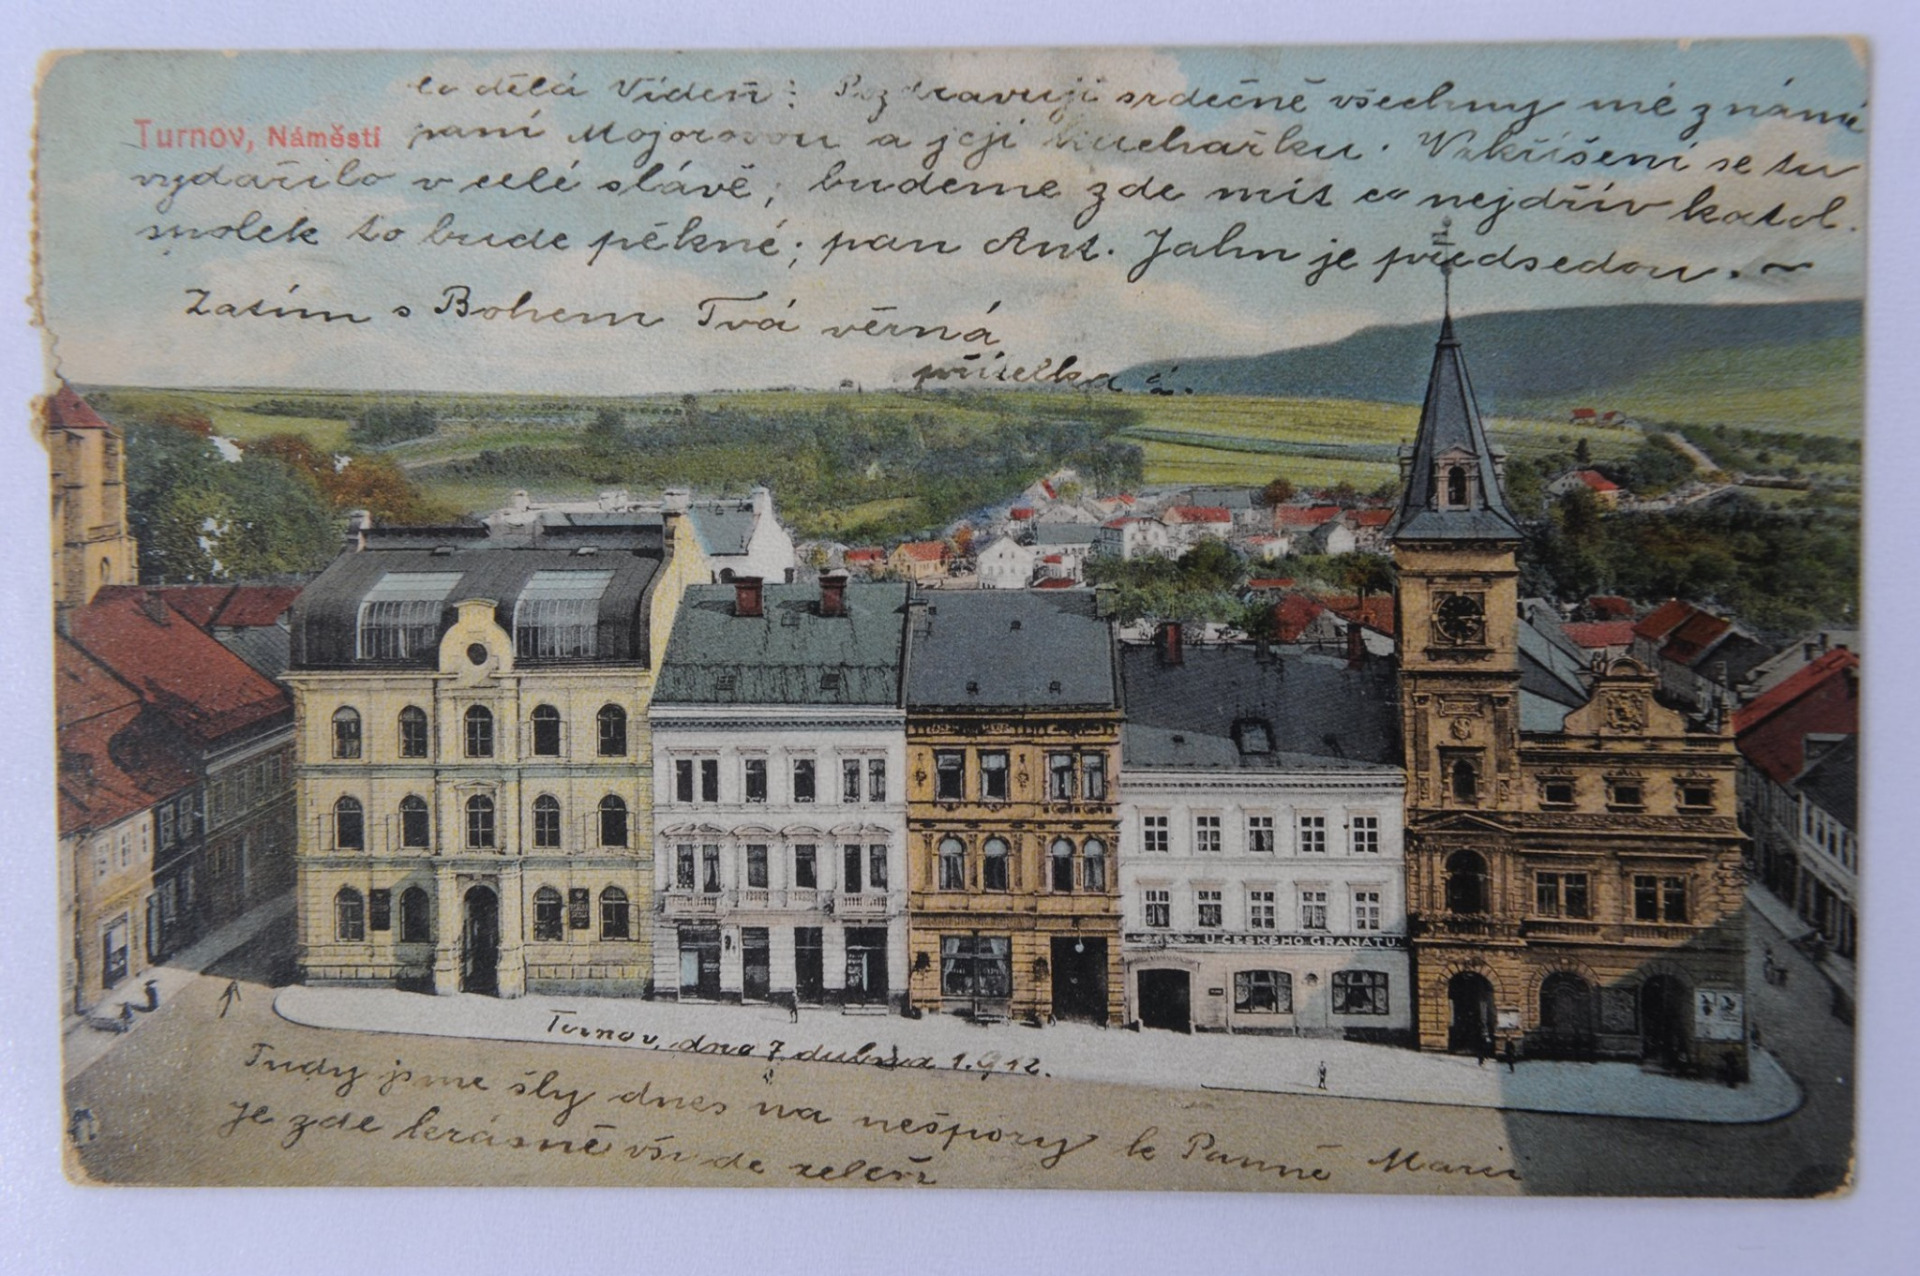 to dělá Vídeň: Pozdravuji srdečně všechny mé známé
Turnov, Náměstí
paní Mojorovou a její kuchařku. Vzkříšení se tu
vydařilo v celé slávě, budeme zde mít co nejdřív katol.
spolek to bude pěkné; pan Ant. Jahn je předsedou. ~
Zatím s Bohem Tvá věrná
přítelka
U ČESKÉHO GRANÁTU.
Turnov, dne 7. dubna 1912.
Tudy jsme šly dnes na nešpory k Panně Marii
Je zde krásně všude zeleň